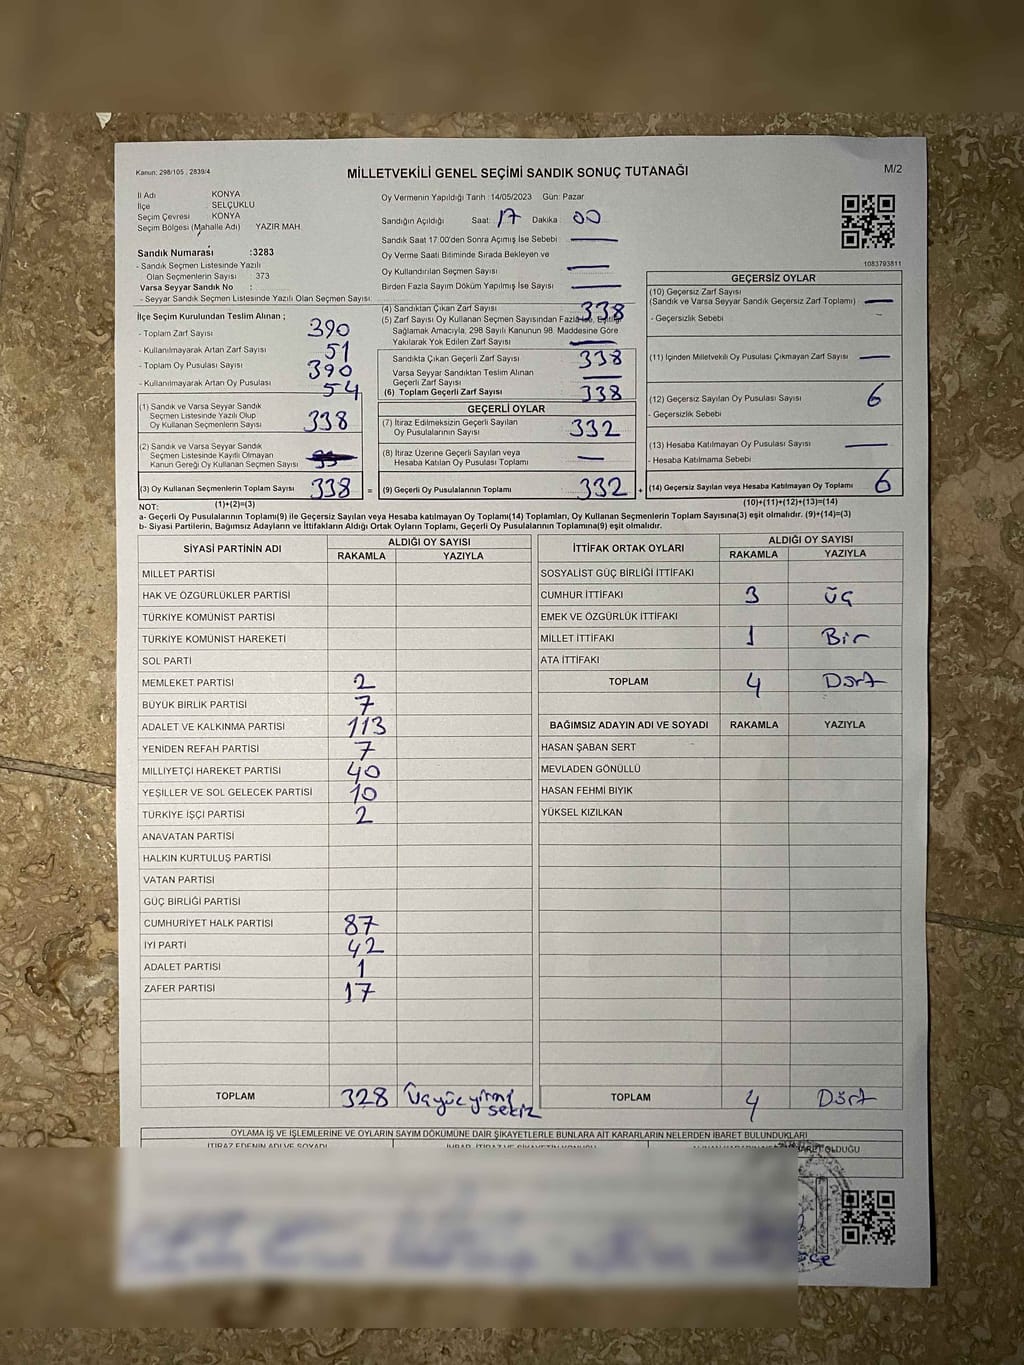 Kanun: 298/105 , 2839/4
MİLLETVEKİLİ GENEL SEÇİMİ SANDIK SONUÇ TUTANAĞI
M/2
İl Adı KONYA
İlçe SELÇUKLU
Seçim Çevresi KONYA
Seçim Bölgesi (Mahalle Adı) YAZIR MAH.
Sandık Numarası :3283
- Sandık Seçmen Listesinde Yazılı
Olan Seçmenlerin Sayısı 373
Varsa Seyyar Sandık No :
- Seyyar Sandık Seçmen Listesinde Yazılı Olan Seçmen Sayısı.
Oy Vermenin Yapıldığı Tarih :14/05/2023 Gün: Pazar
Sandığın Açıldığı Saat: 17 Dakika: 00
Sandık Saat 17:00'den Sonra Açımış İse Sebebi :
Oy Verme Saati Bitiminde Sırada Bekleyen ve
Oy Kullandırılan Seçmen Sayısı :
Birden Fazla Sayım Döküm Yapılmış İse Sayısı :
1083793811
İlçe Seçim Kurulundan Teslim Alınan ;
- Toplam Zarf Sayısı 390
- Kullanılmayarak Artan Zarf Sayısı 51
- Toplam Oy Pusulası Sayısı 390
- Kullanılmayarak Artan Oy Pusulası 54
(1) Sandık ve Varsa Seyyar Sandık
Seçmen Listesinde Yazılı Olup
Oy Kullanan Seçmenlerin Sayısı 338
(2) Sandık ve Varsa Seyyar Sandık
Seçmen Listesinde Kayıtlı Olmayan
Kanun Gereği Oy Kullanan Seçmen Sayısı
(3) Oy Kullanan Seçmenlerin Toplam Sayısı 338 =
(4) Sandıktan Çıkan Zarf Sayısı 338
(5) Zarf Sayısı Oy Kullanan Seçmen Sayısından Fazla İse, Eşitliği
Sağlamak Amacıyla, 298 Sayılı Kanunun 98. Maddesine Göre
Yakılarak Yok Edilen Zarf Sayısı
Sandıkta Çıkan Geçerli Zarf Sayısı 338
Varsa Seyyar Sandıktan Teslim Alınan
Geçerli Zarf Sayısı
(6) Toplam Geçerli Zarf Sayısı 338
GEÇERLİ OYLAR
(7) İtiraz Edilmeksizin Geçerli Sayılan
Oy Pusulalarının Sayısı 332
(8) İtiraz Üzerine Geçerli Sayılan veya
Hesaba Katılan Oy Pusulası Toplamı
(9) Geçerli Oy Pusulalarının Toplamı 332 +
GEÇERSİZ OYLAR
(10) Geçersiz Zarf Sayısı
(Sandık ve Varsa Seyyar Sandık Geçersiz Zarf Toplamı)
- Geçersizlik Sebebi
(11) İçinden Milletvekili Oy Pusulası Çıkmayan Zarf Sayısı
(12) Geçersiz Sayılan Oy Pusulası Sayısı 6
- Geçersizlik Sebebi
(13) Hesaba Katılmayan Oy Pusulası Sayısı
- Hesaba Katılmama Sebebi
(14) Geçersiz Sayılan veya Hesaba Katılmayan Oy Toplamı 6
NOT: (1)+(2)=(3) (10)+(11)+(12)+(13)=(14)
a- Geçerli Oy Pusulalarının Toplamı(9) ile Geçersiz Sayılan veya Hesaba katılmayan Oy Toplamı(14) Toplamları, Oy Kullanan Seçmenlerin Toplam Sayısına(3) eşit olmalıdır. (9)+(14)=(3)
b- Siyasi Partilerin, Bağımsız Adayların ve İttifakların Aldığı Ortak Oyların Toplamı, Geçerli Oy Pusulalarının Toplamına(9) eşit olmalıdır.
SİYASİ PARTİNİN ADI ALDIĞI OY SAYISI
RAKAMLA YAZIYLA
MİLLET PARTİSİ
HAK VE ÖZGÜRLÜKLER PARTİSİ
TÜRKİYE KOMÜNİST PARTİSİ
TÜRKİYE KOMÜNİST HAREKETİ
SOL PARTİ
MEMLEKET PARTİSİ 2
BÜYÜK BİRLİK PARTİSİ 7
ADALET VE KALKINMA PARTİSİ 113
YENİDEN REFAH PARTİSİ 7
MİLLİYETÇİ HAREKET PARTİSİ 40
YEŞİLLER VE SOL GELECEK PARTİSİ 10
TÜRKİYE İŞÇİ PARTİSİ 2
ANAVATAN PARTİSİ
HALKIN KURTULUŞ PARTİSİ
VATAN PARTİSİ
GÜÇ BİRLİĞİ PARTİSİ
CUMHURİYET HALK PARTİSİ 87
İYİ PARTİ 42
ADALET PARTİSİ 1
ZAFER PARTİSİ 17
TOPLAM 328 Üçyüzyirmi
sekiz
İTTİFAK ORTAK OYLARI ALDIĞI OY SAYISI
RAKAMLA YAZIYLA
SOSYALİST GÜÇ BİRLİĞİ İTTİFAKI
CUMHUR İTTİFAKI 3 Üç
EMEK VE ÖZGÜRLÜK İTTİFAKI
MİLLET İTTİFAKI 1 Bir
ATA İTTİFAKI
TOPLAM 4 Dört
BAĞIMSIZ ADAYIN ADI VE SOYADI RAKAMLA YAZIYLA
HASAN ŞABAN SERT
MEVLADEN GÖNÜLLÜ
HASAN FEHMİ BIYIK
YÜKSEL KIZILKAN
TOPLAM 4 Dört
OYLAMA İŞ VE İŞLEMLERİNE VE OYLARIN SAYIM DÖKÜMÜNE DAİR ŞİKAYETLERLE BUNLARA AİT KARARLARIN NELERDEN İBARET BULUNDUKLARI
İTİRAZ EDENİN ADI VE SOYADI